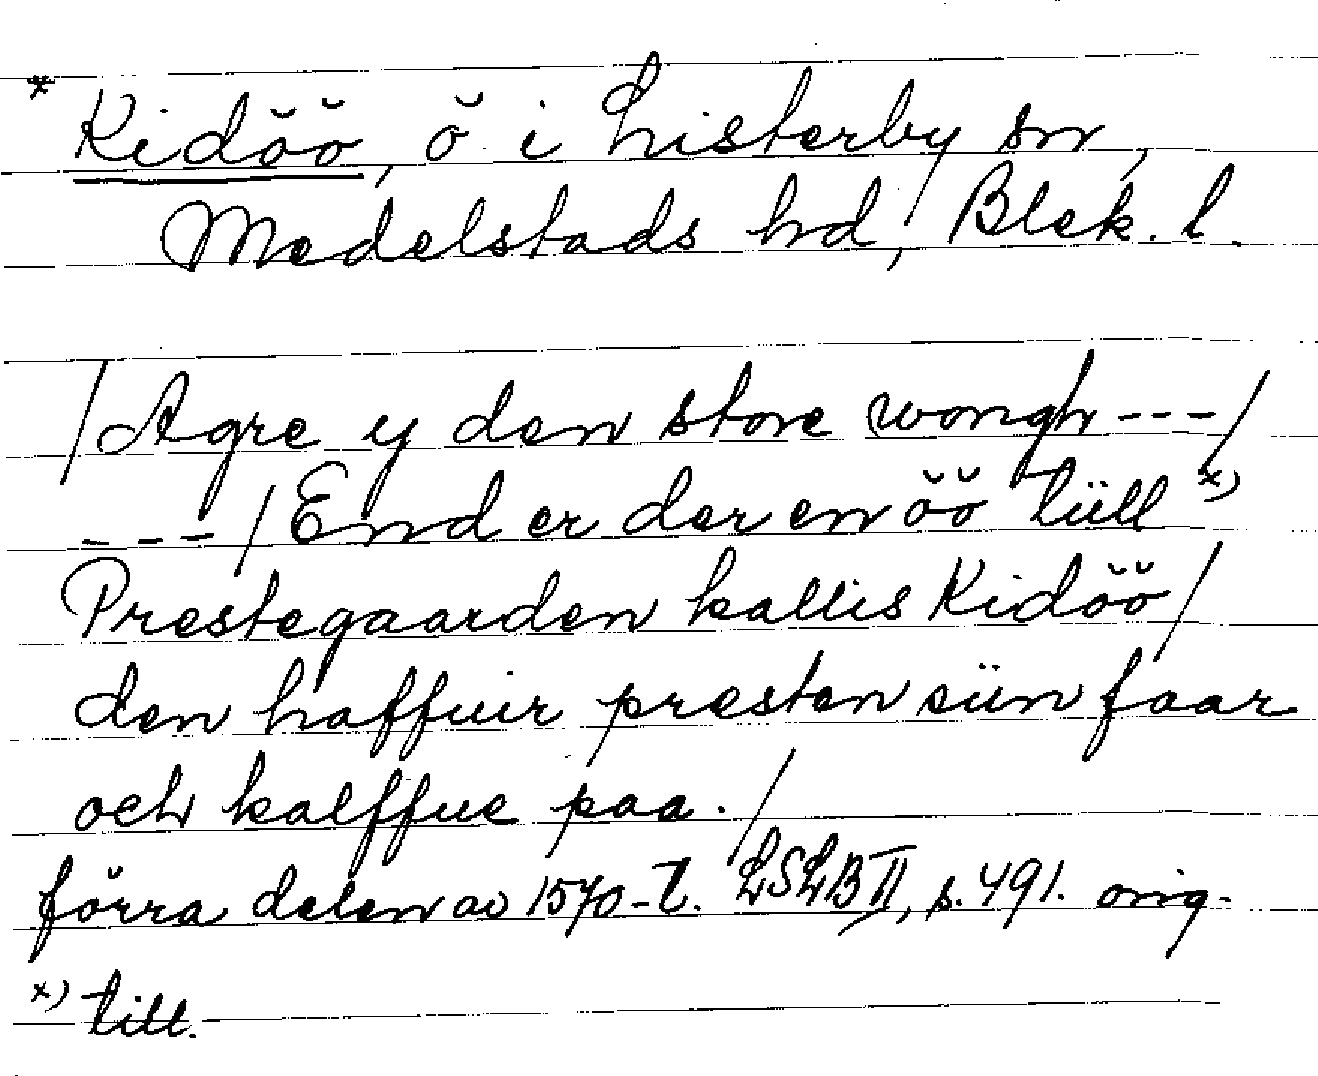 * Kidöö, ö i Listerby sn,
Medelstads hd, Blek. l.
/Agre y den store wongh---/
---/End er der en öö tüll x)
Prestegaarden kallis Kidöö/
den haffuir presten siin faar
och kalffue paa./
förra delen av 1570-t. LSLB II, s. 491. orig.
x) till.